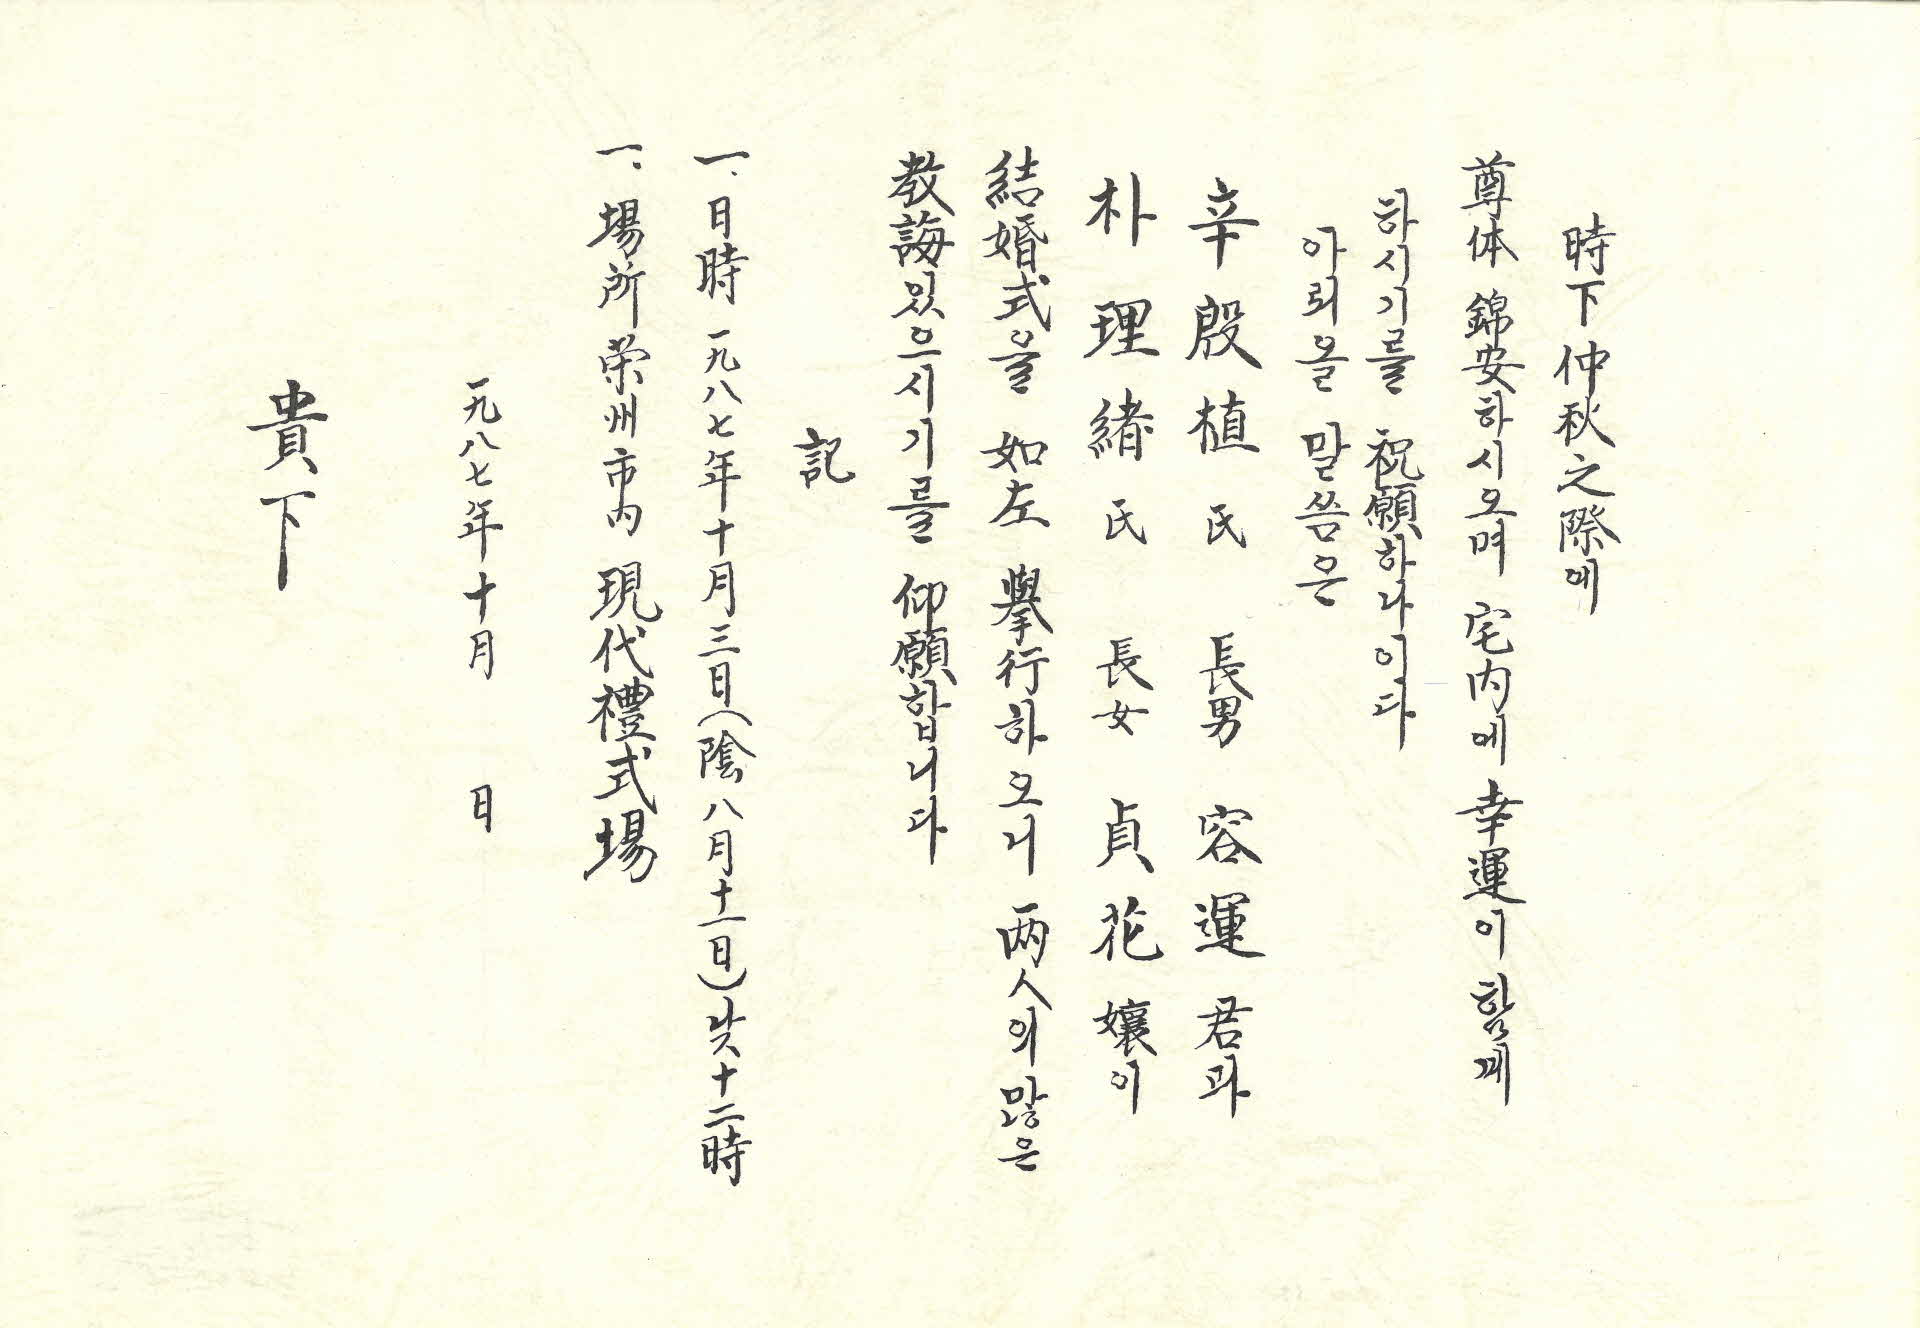 時下仲秋之際에
尊体 錦安하시오며 宅内에 幸運이 함께
하시기를 祝願하나이다
아뢰올 말씀은
辛殷植氏 長男 容運君과
朴理緖氏 長女 貞花孃이
結婚式을 如左 擧行하오니 两人의 많은
教誨있으시기를 仰願합니다
記
一、日時 一九八七年十月三日(陰八月十一日) 낮十二時
一、場所 荣州市内 現代禮式場
一九八七年十月 日
貴下